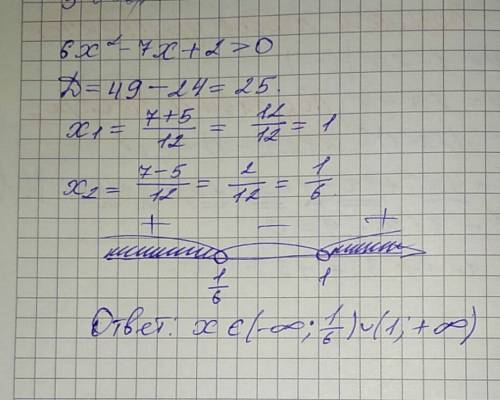 6x² - 7x + 2 > 0
D = 49 - 24 = 25.
x₁ = (7+5)/12 = 12/12 = 1
x₂ = (7-5)/12 = 2/12 = 1/6
+ − +
1/6 1
Ответ: x ∈ (-∞; 1/6) ∪ (1; +∞)